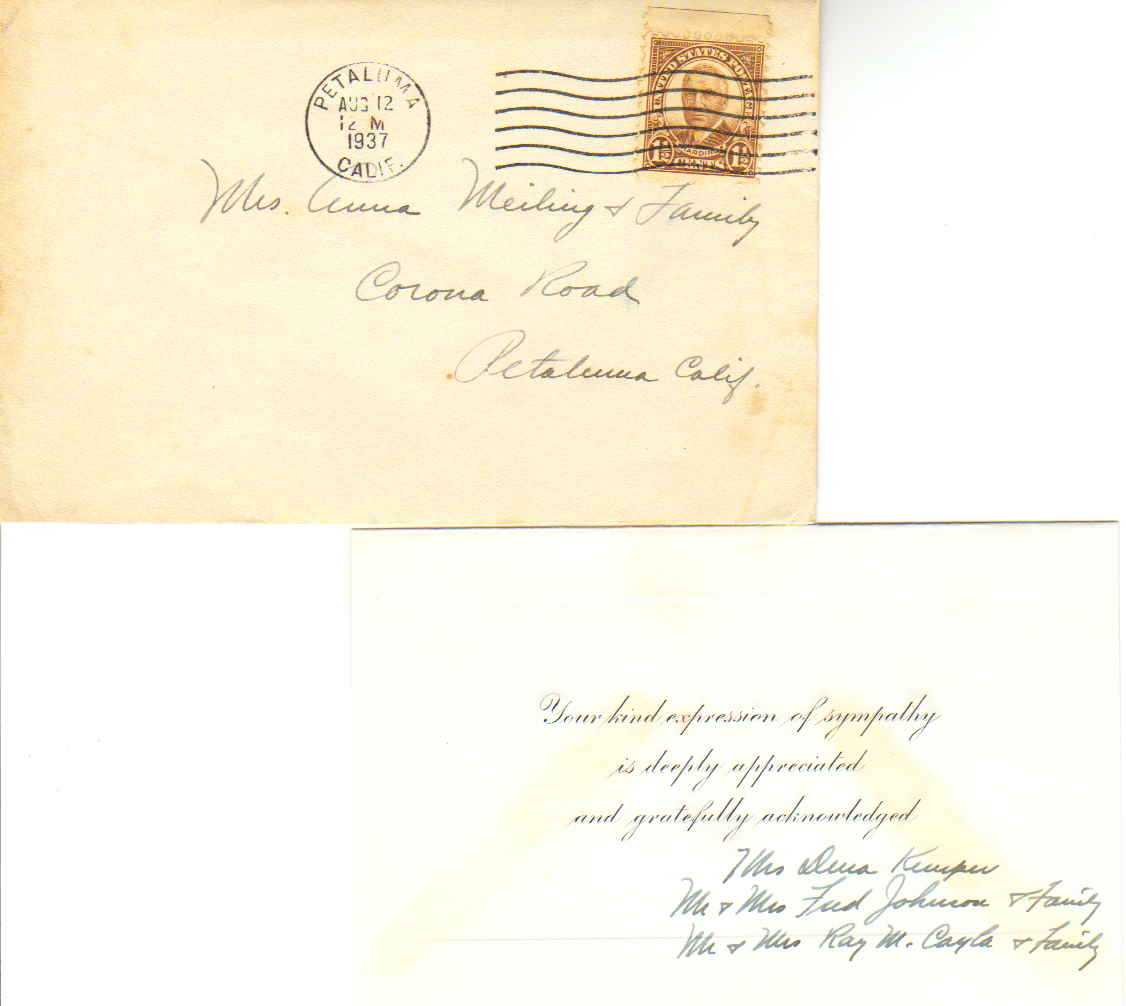 PETALUMA
AUG 12
12 M
1937
CALIF.
UNITED STATES POSTAGE
HARDING
1½ 1½
Mrs. Anna Meiling & Family
Corona Road
Petaluma Calif.
Your kind expression of sympathy
is deeply appreciated
and gratefully acknowledged
Mrs Dena Kemper
Mr & Mrs Fred Johnson & Family
Mr & Mrs Ray M. Cayla & Family